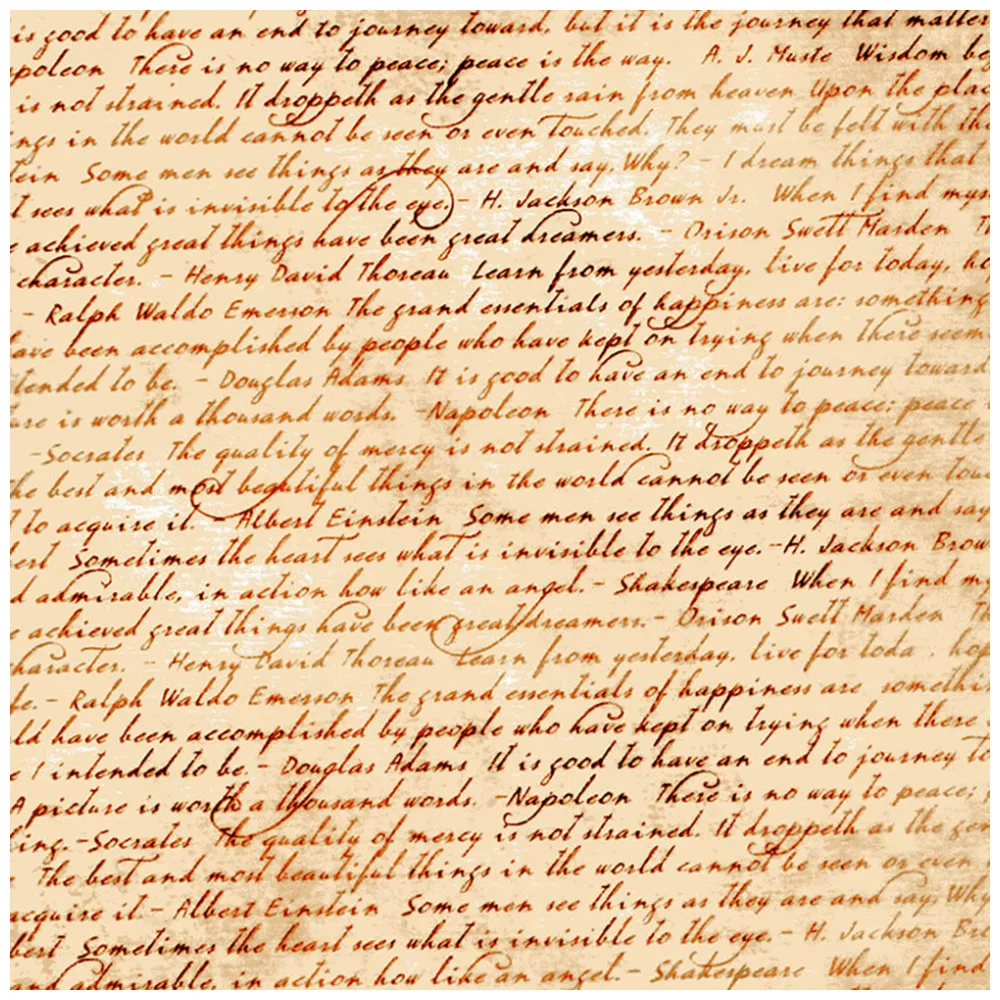 is good to have an end to journey toward, but it is the journey that matters
poleon There is no way to peace; peace is the way. A. J. Muste Wisdom be
is not strained. It droppeth as the gentle rain from heaven Upon the plac
ngs in the world cannot be seen or even touched. They must be felt with the
tein Some men see things as they are and say, Why? - I dream things that
t sees what is invisible to the eye. - H. Jackson Brown Jr. When I find mys
e achieved great things have been great dreamers. - Orison Swett Marden Th
character. - Henry David Thoreau Learn from yesterday, live for today, ho
- Ralph Waldo Emerson The grand essentials of happiness are: something
have been accomplished by people who have kept on trying when there seem
tended to be. - Douglas Adams It is good to have an end to journey toward
ure is worth a thousand words. -Napoleon There is no way to peace; peace
-Socrates The quality of mercy is not strained. It droppeth as the gentle
he best and most beautiful things in the world cannot be seen or even touc
t to acquire it. - Albert Einstein Some men see things as they are and say
est Sometimes the heart sees what is invisible to the eye. -H. Jackson Brow
d admirable, in action how like an angel. - Shakespeare When I find my
e achieved great things have been great dreamers. - Orison Swett Marden Th
character. - Henry David Thoreau Learn from yesterday, live for toda , hop
fe. - Ralph Waldo Emerson The grand essentials of happiness are somethi
ld have been accomplished by people who have kept on trying when there
e I intended to be. - Douglas Adams It is good to have an end to journey to
A picture is worth a thousand words. -Napoleon There is no way to peace;
ing. -Socrates The quality of mercy is not strained. It droppeth as the gen
The best and most beautiful things in the world cannot be seen or even
acquire it - Albert Einstein Some men see things as they are and say, Why
best Sometimes the heart sees what is invisible to the eye. - H. Jackson Bro
and admirable, in action how like an angel. - Shakespeare When I find